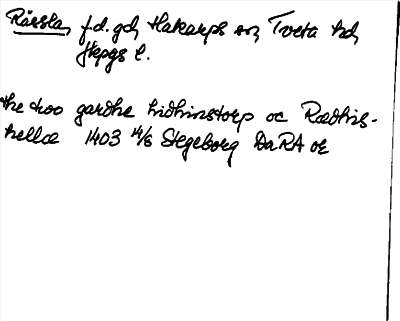 Råssla, f.d. gd, Hakarps sn, Tveta hd,
Jkpgs l.
the two gardhe hidhinstorp oc Rædhis-
hellæ 1403 4/8 Stegeborg DaRA or